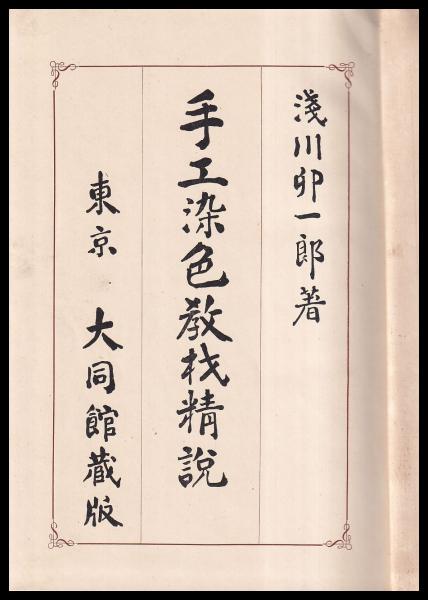 淺川卯一郎著
手工染色教材精說
東京 大同館藏版